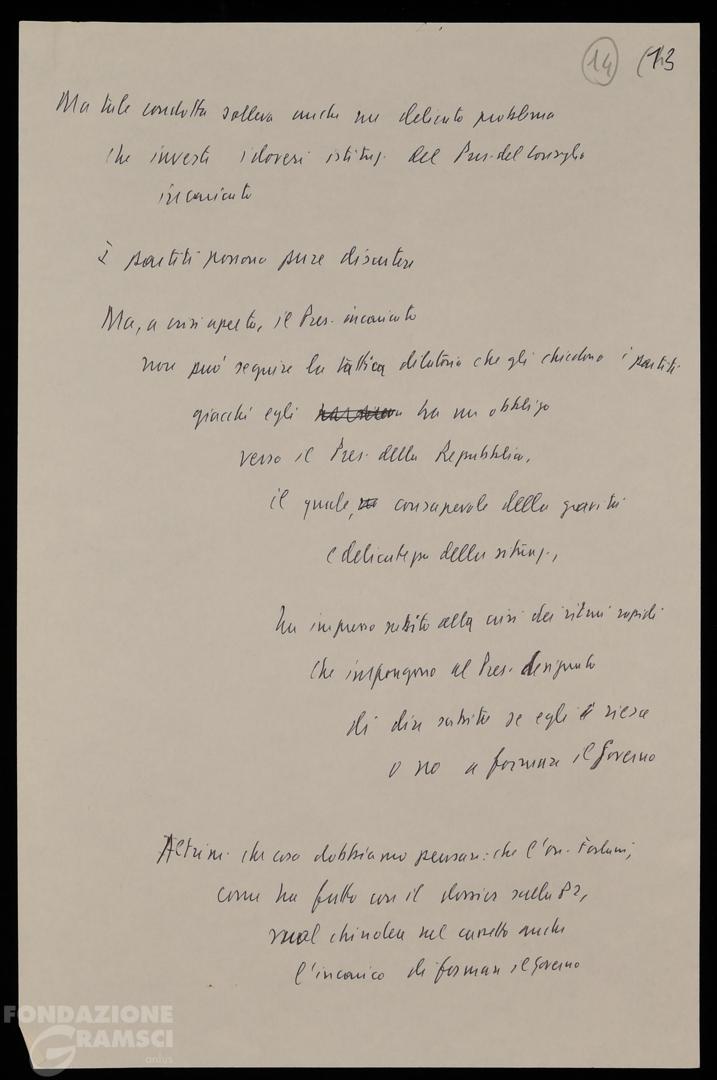 14 (13
Ma tale condotta solleva anche un delicato problema
che investe i doveri istituz. del Pres. del Consiglio
incaricato
I partiti possono pure discutere
Ma, a crisi aperta, il Pres. incaricato
non può seguire la tattica dilatoria che gli chiedono i partiti
giacché egli ha un obbligo
verso il Pres. della Repubblica,
il quale, consapevole della gravità
e delicatezza della situaz.,
ha impresso subito alla crisi dei ritmi rapidi
che impongono al Pres. designato
di dire subito se egli riesce
o no a formare il Governo
Altrim. che cosa dobbiamo pensare: che l'on. Forlani,
come ha fatto con il dossier sulla P2,
vuol chiudere nel cassetto anche
l'incarico di formare il Governo
FONDAZIONE
GRAMSCI
onlus